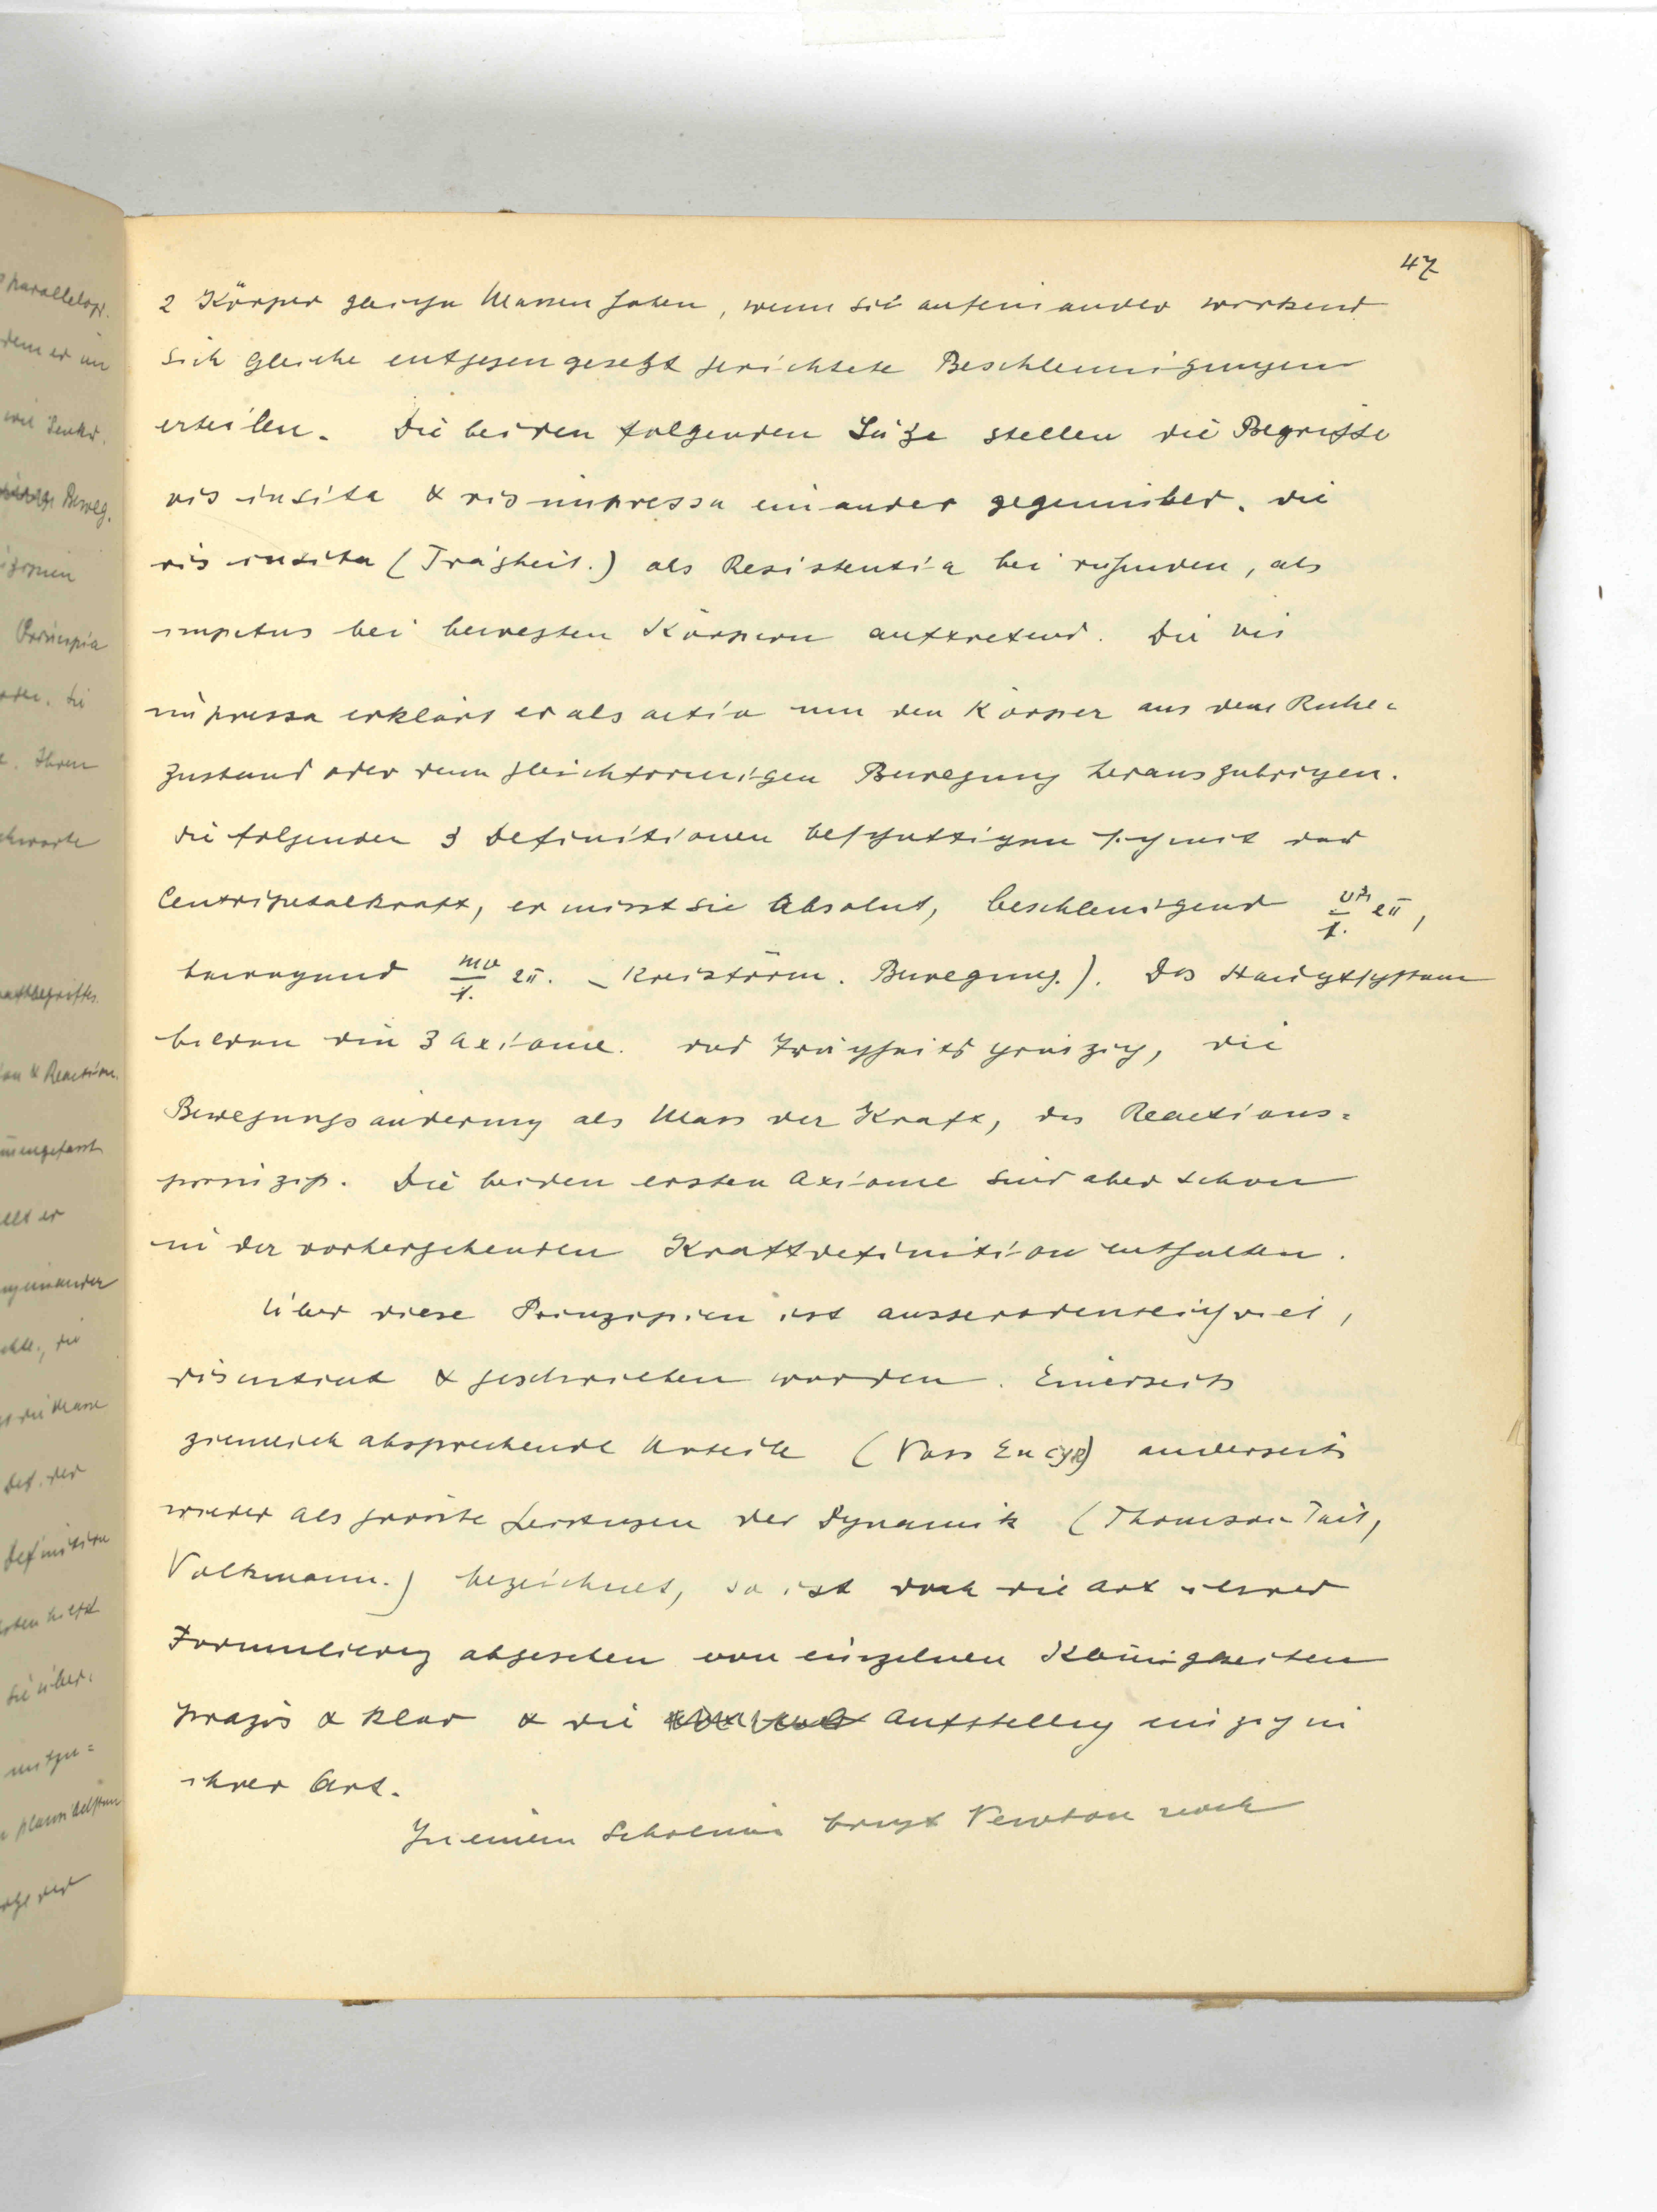 parallelogr.
dem er im
wie Senkr.
Beweg.
Principia
Ihren
on & Reaction.
Def. der
Definition
sie über=
47
2 Körper gleiche Massen haben, wenn sie aufeinander wirkend
sich gleiche entgegengesetzt gerichtete Beschleunigungen
erteilen. Die beiden folgenden Sätze stellen die Begriffe
vis insita & vis impressa einander gegenüber. die
vis insita (Trägheit.) als Resistentia bei ruhenden, als
impetus bei bewegten Körpern auftretend. Die vis
impressa erklärt er als actio um den Körper aus dem Ruhe=
zustand oder dem gleichförmigen Bewegung herauszubrigen.
die folgenden 3 Definitionen beschäftigen sich mit der
Centripetalkraft, er misst sie Absolut, beschleunigend
bewegend mv 2π. Kreisförm. Bewegung.). Das Hauptsystem
bilden die 3 Axiome. das Trägheitsprinzip, die
Bewegungsänderung als Mass der Kraft, das Reactions=
prinzip. Die beiden ersten Axiome sind aber schon
in der vorhergehenden Kraftdefinition enthalten.
Über diese Prinzipien ist ausserordentlich viel,
diskutiert & geschrieben worden. Einerseits
ziemlich absprechende Urteile (Voss Encykl) anderseits
wieder als grösste Leistungen der Dynamik (Thomson-Tait,
Volkmann.) bezeichnet, so ist doch die Art ihrer
Formulierung abgesehen von einzelnen Kleinigkeiten
präzis & klar & die Aufstellung einzig in
ihrer Art.
In einem Scholium bringt Newton noch